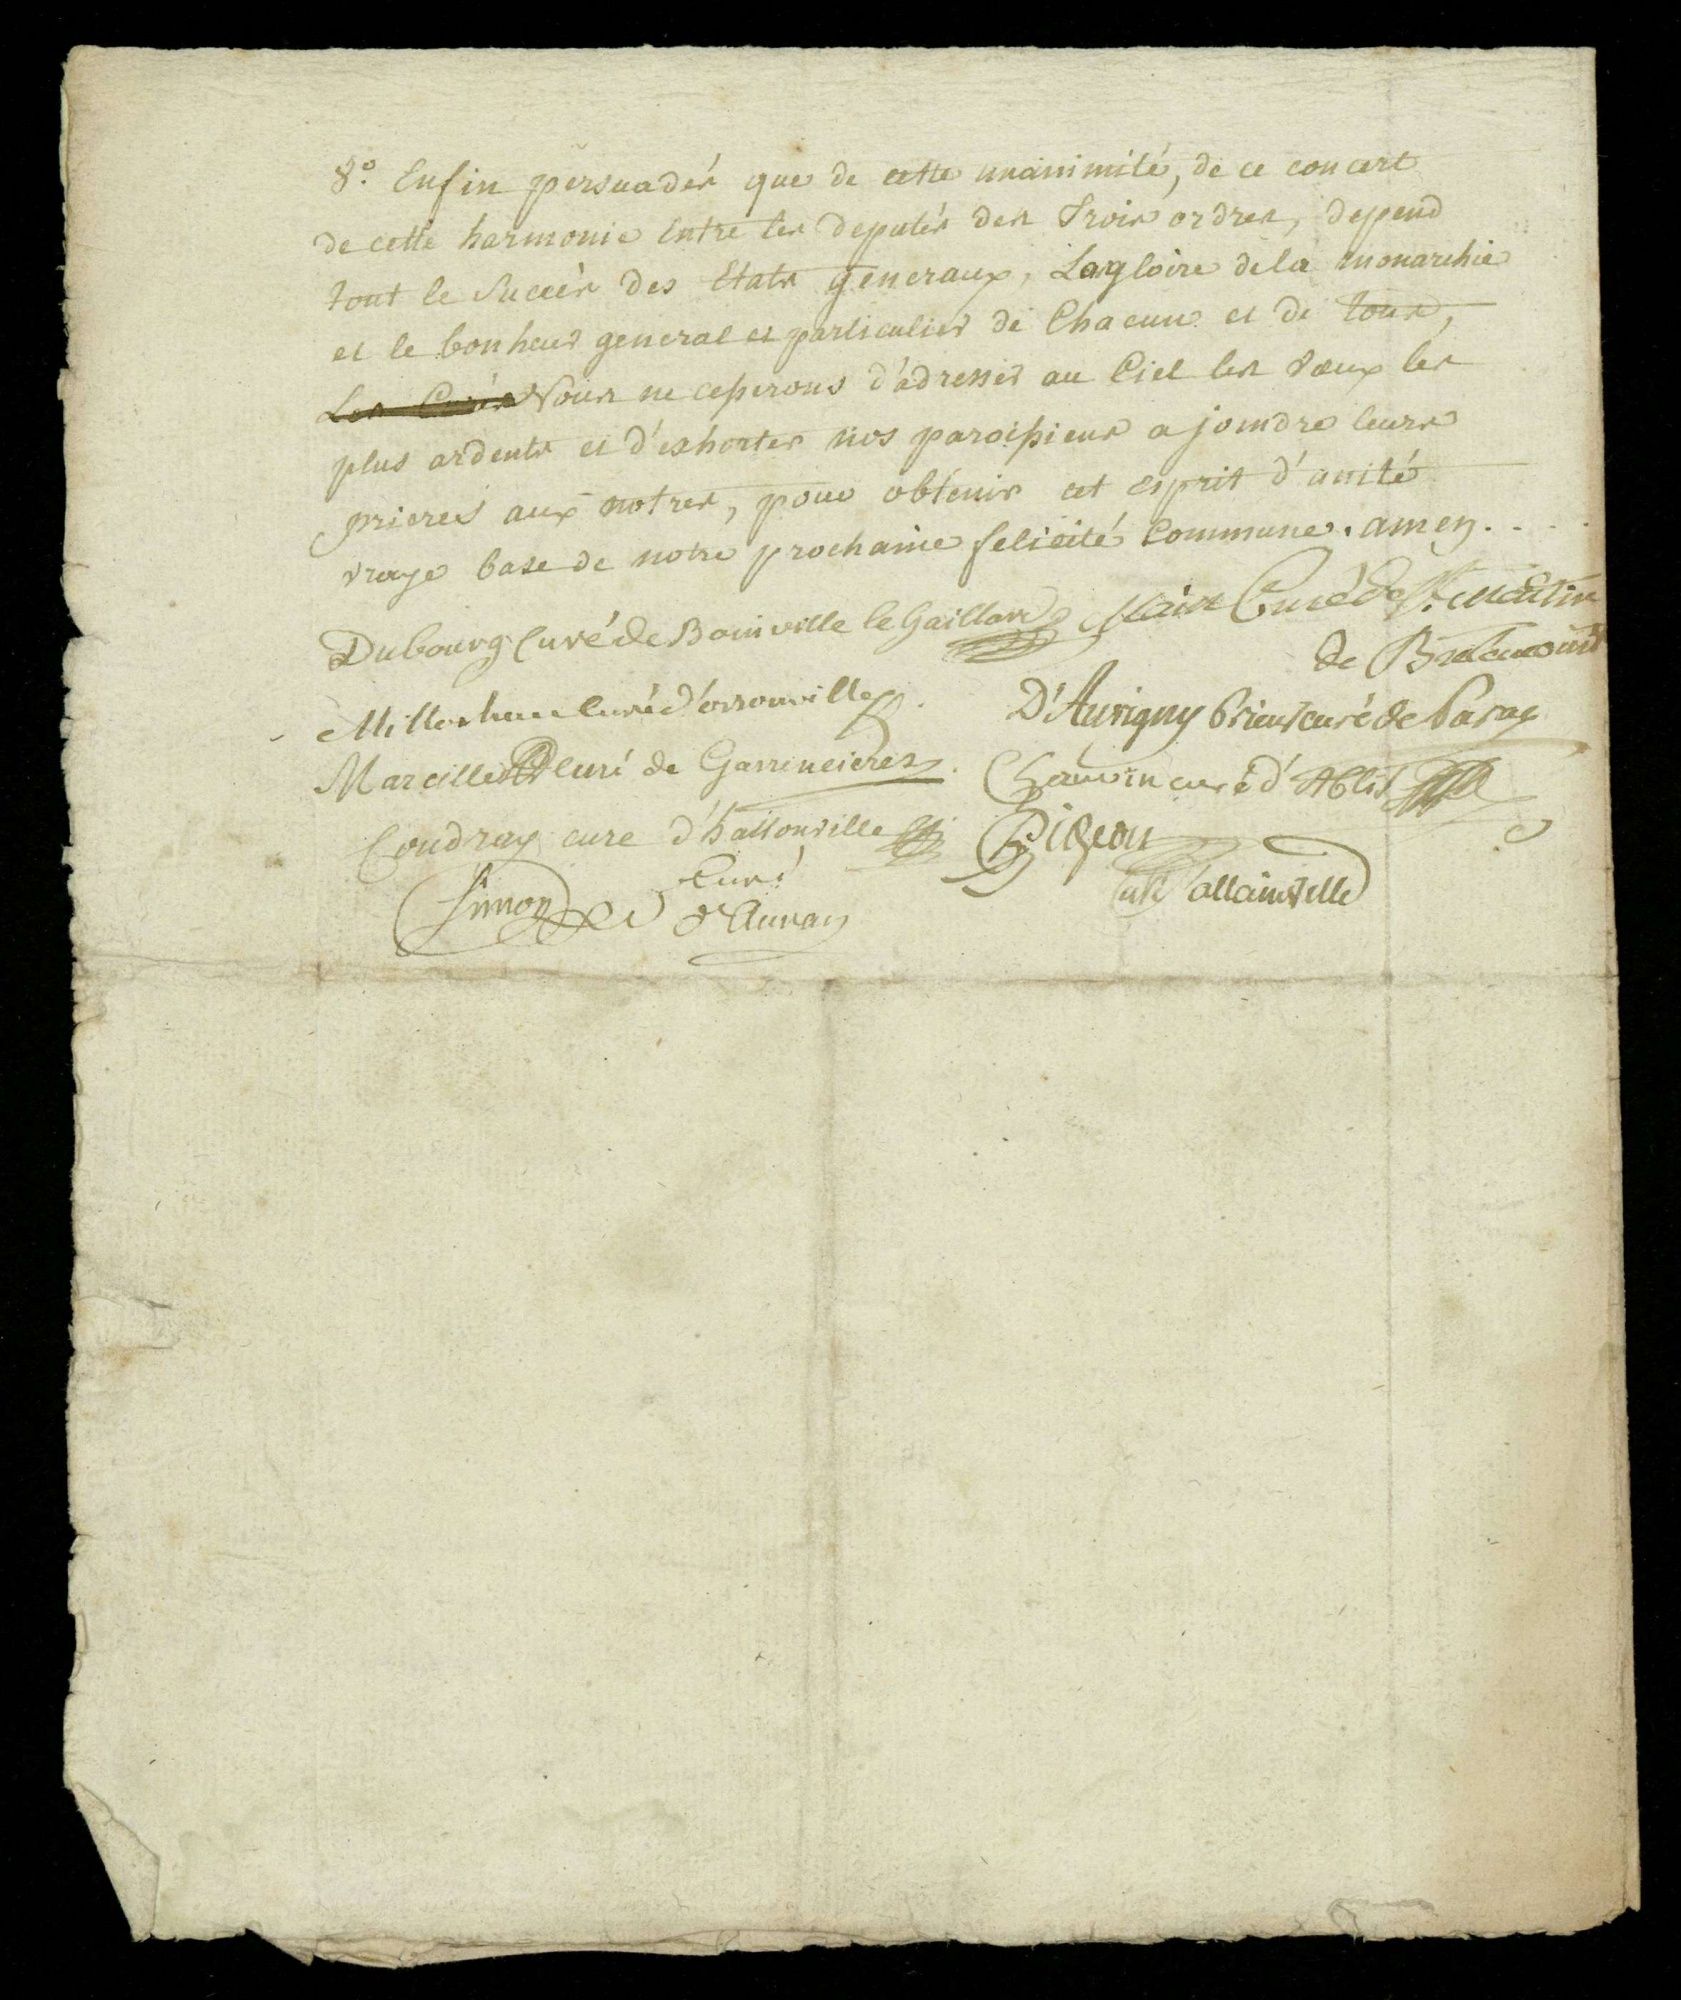 8.° Enfin persuadés que de cette unanimité, de ce concert
de cette harmonie Entre les deputés des Trois ordres, depend
tout le Succès des Etats generaux, La gloire de la monarchie
et le bonheur general et particulier de Chacun et de tous,
Les Curés Nous ne cesserons d'adresser au Ciel les vœux les
plus ardents et d'exhorter nos paroissiens a joindre leurs
prieres aux notres, pour obtenir cet esprit d'unité
vraye base de notre prochaine felicité Commune. amen. . . .
Dubourg Curé de Boinville le Gaillard
Curé de St. Martin
de Bretencourt
curé d'orsonville
D'Auvigny Prieur curé de Paray
Marcille Curé de Garrencieres
Chauvin curé d'Ablis
Coudray cure d'hattonville
Pigeon
curé d'allainville
Simon
Curé
d'Aunay